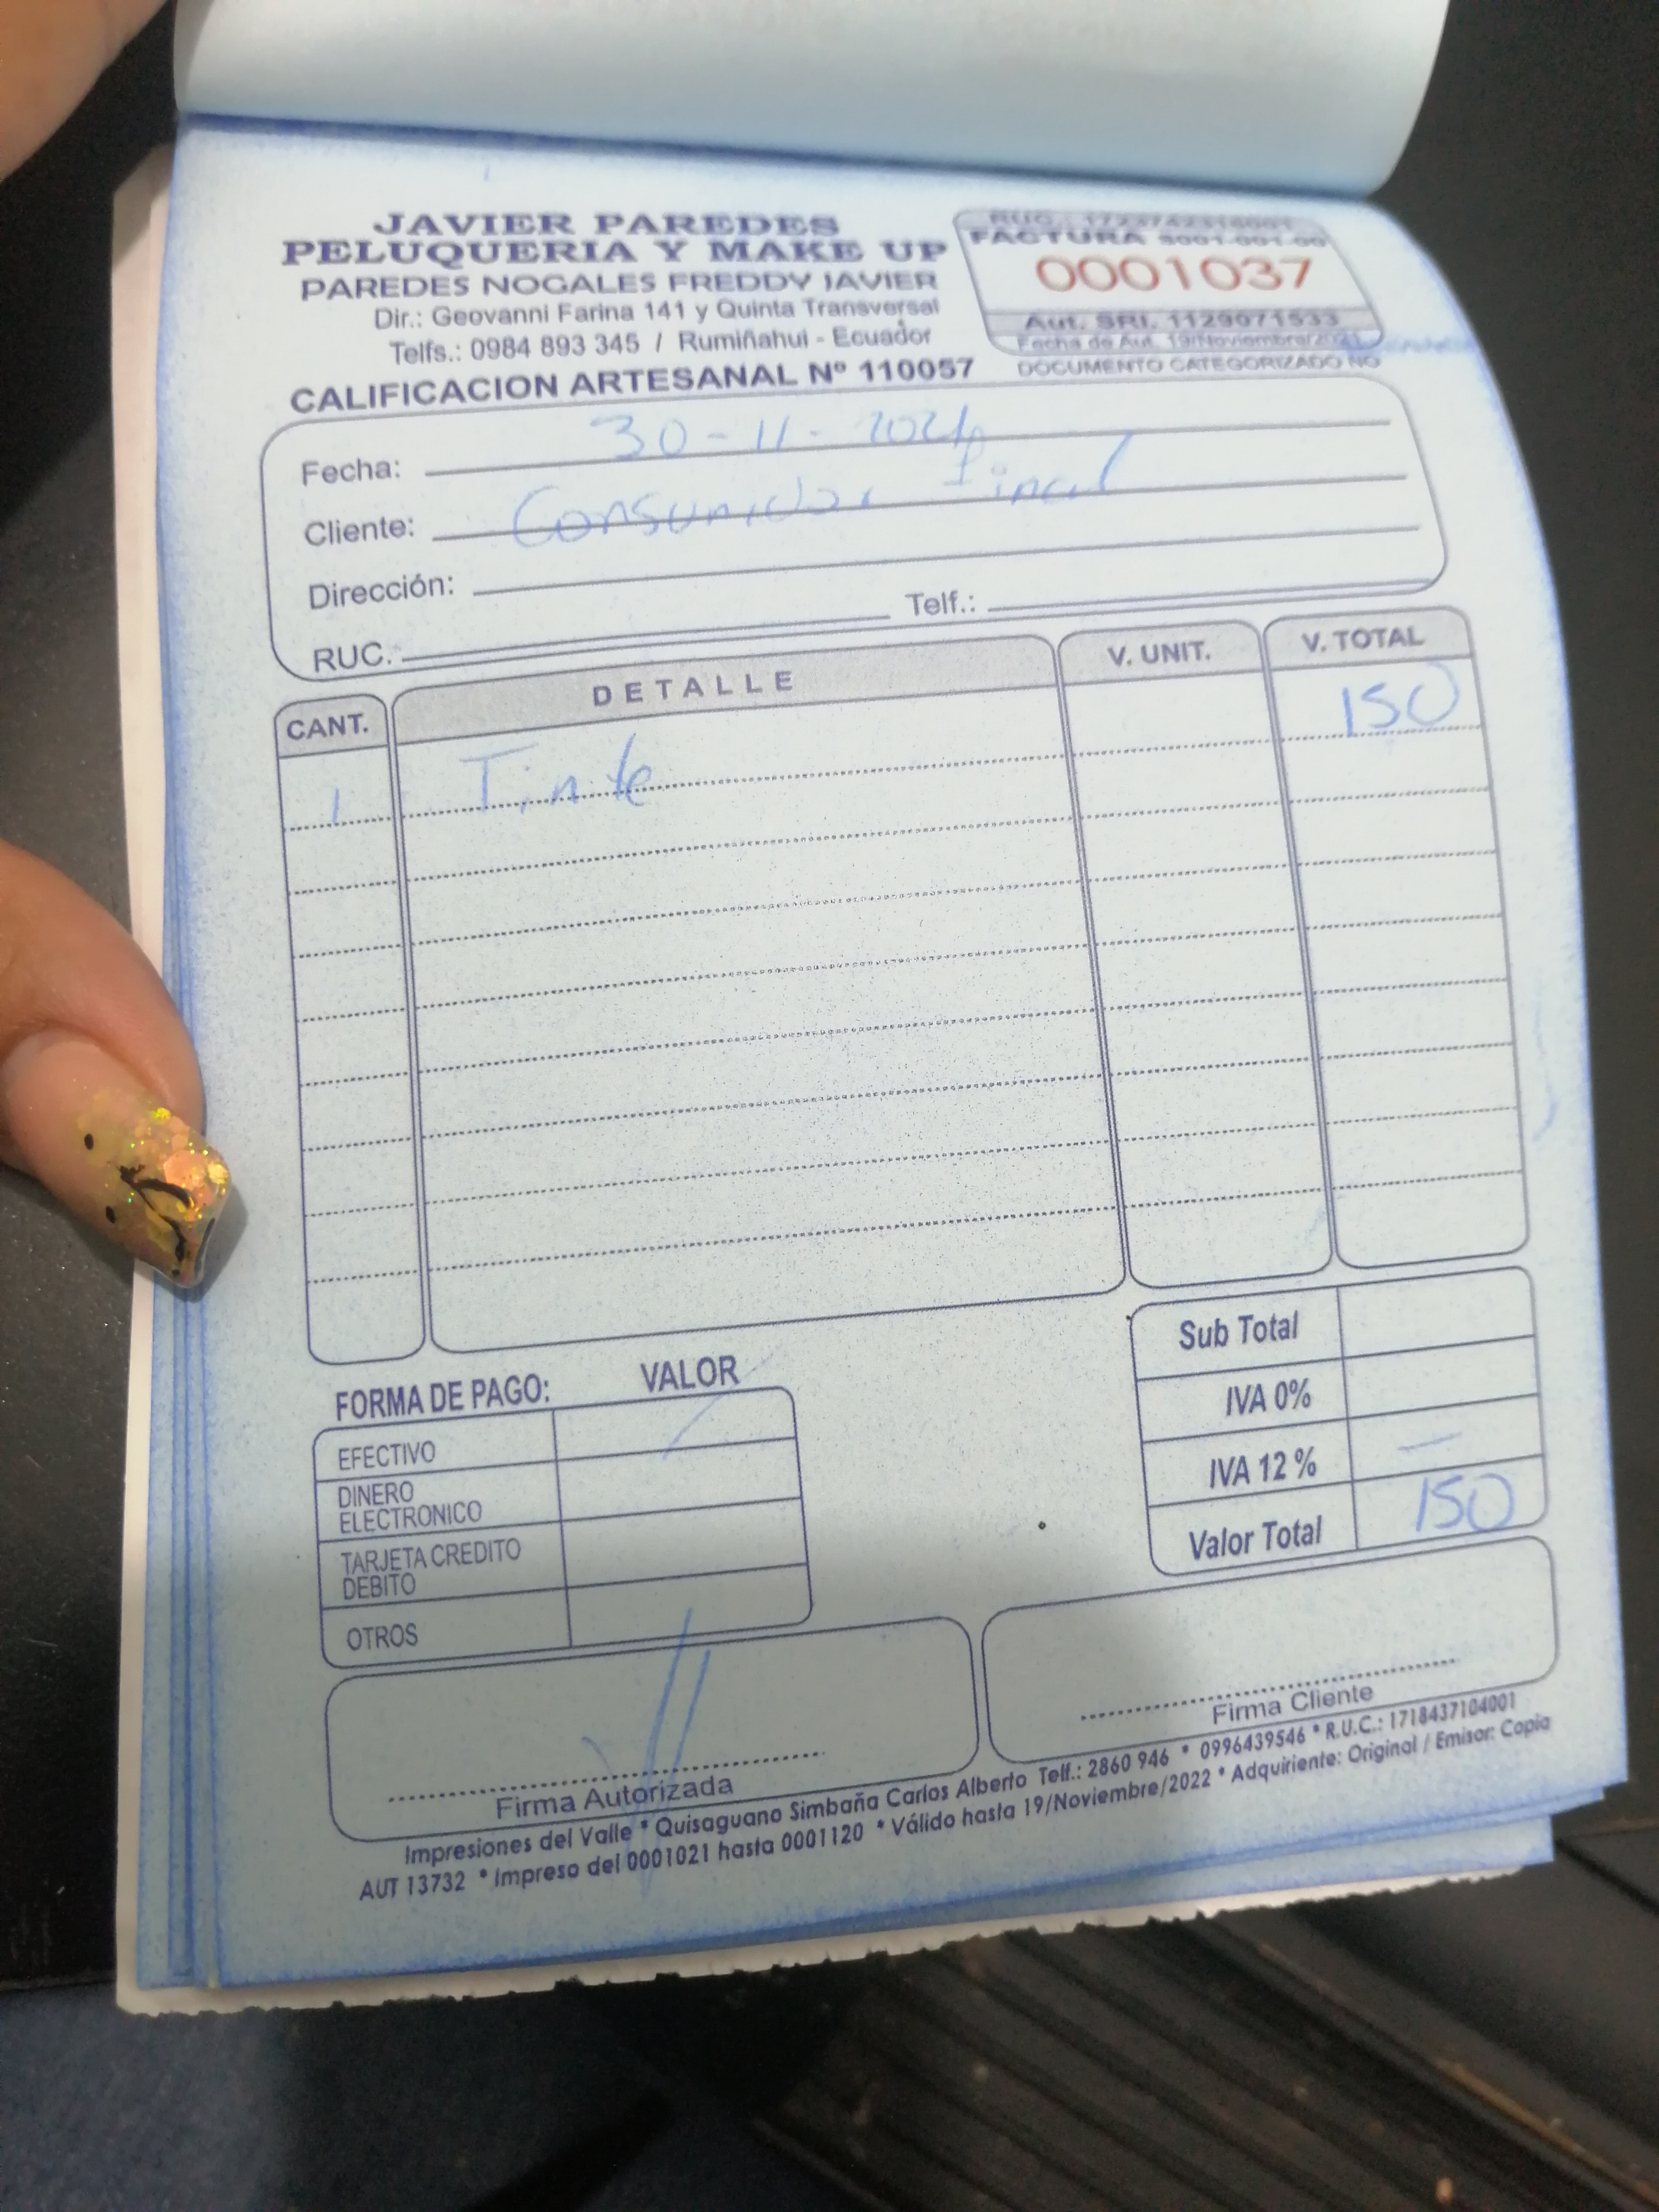 JAVIER PAREDES
PELUQUERIA Y MAKE UP
PAREDES NOGALES FREDDY JAVIER
Dir.: Geovanni Farina 141 y Quinta Transversal
Telfs.: 0984 893 345 / Rumiñahui - Ecuador
CALIFICACION ARTESANAL Nº 110057
RUC.:
FACTURA S001-001-00
0001037
Aut. SRI. 1129071533
Fecha de Aut. 19/Noviembre/2021
DOCUMENTO CATEGORIZADO NO
Fecha: 30-11-2021
Cliente: Consumidor final
Dirección:
RUC. Telf.:
CANT. DETALLE V. UNIT. V. TOTAL
1 Tinte 150
FORMA DE PAGO: VALOR
EFECTIVO
DINERO ELECTRONICO
TARJETA CREDITO DEBITO
OTROS
Sub Total
IVA 0%
IVA 12 % —
Valor Total 150
Firma Autorizada
Firma Cliente
Impresiones del Valle * Quisaguano Simbaña Carlos Alberto Telf.: 2860 946 * 0996439546 * R.U.C.: 1718437104001
AUT 13732 * Impreso del 0001021 hasta 0001120 * Válido hasta 19/Noviembre/2022 * Adquiriente: Original / Emisor: Copia